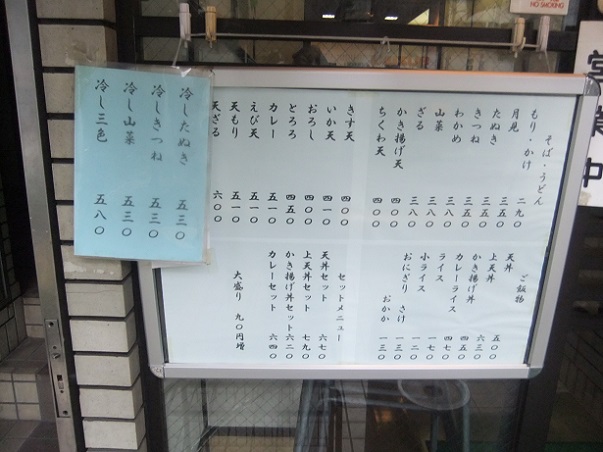 営業中
NO SMOKING
そば・うどん
もり・かけ 二九〇
月見 三五〇
たぬき 三五〇
きつね 三五〇
わかめ 三八〇
山菜 三八〇
ざる 三八〇
かき揚げ天 四〇〇
ちくわ天 四〇〇
きす天 四〇〇
いか天 四一〇
おろし 四〇〇
とろろ 四五〇
カレー 五一〇
えび天 五一〇
天もり 五一〇
天ざる 六〇〇
ご飯物
天丼 五〇〇
上天丼 六三〇
かき揚げ丼 四五〇
カレーライス 四七〇
ライス 一七〇
小ライス 一二〇
おにぎり さけ 一三〇
おかか 一三〇
セットメニュー
天丼セット 六七〇
上天丼セット 七九〇
かき揚げ丼セット 六二〇
カレーセット 六四〇
大盛り 九〇円増
冷したぬき 五三〇
冷しきつね 五三〇
冷し山菜 五三〇
冷し三色 五八〇